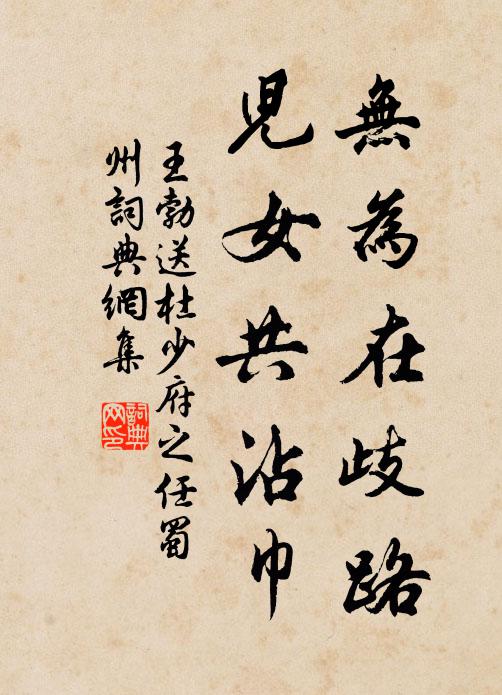 無為在歧路
兒女共沾巾
王勃送杜少府之任蜀
州詞典網集
詞典
网印